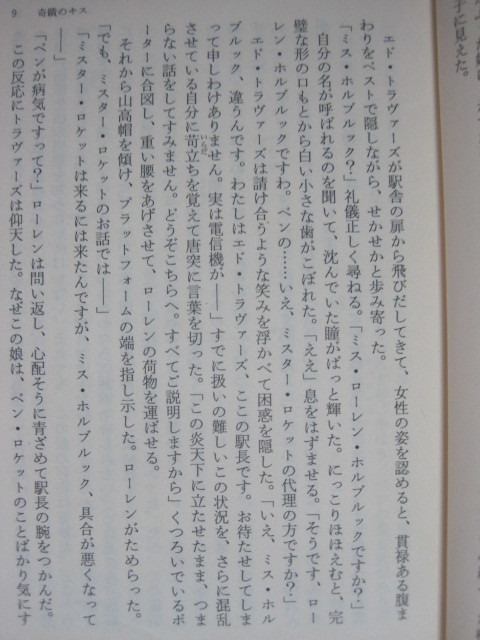 子に見えた。
エド・トラヴァーズが駅舎の扉から飛びだしてきて、女性の姿を認めると、貫禄ある腹ま
わりをベストで隠しながら、せかせかと歩み寄った。
「ミス・ホルブルック？」礼儀正しく尋ねる。「ミス・ローレン・ホルブルックですか？」
自分の名が呼ばれるのを聞いて、沈んでいた瞳がぱっと輝いた。にっこりほほえむと、完
璧な形の口もとから白い小さな歯がこぼれた。「ええ」息をはずませる。「そうです、ロー
レン・ホルブルックですわ。ベンの……いえ、ミスター・ロケットの代理の方ですか？」
エド・トラヴァーズは請け合うような笑みを浮かべて困惑を隠した。「いえ、ミス・ホル
ブルック、違うんです。わたしはエド・トラヴァーズ、ここの駅長です。お待たせしてしま
って申しわけありません。実は電信機が――」すでに扱いの難しいこの状況を、さらに混乱
させている自分に苛立ちを覚えて唐突に言葉を切った。「この炎天下に立たせたまま、つま
らない話をしてすみません。どうぞこちらへ。すべてご説明しますから」くつろいでいるポ
ーターに合図し、重い腰をあげさせて、ローレンの荷物を運ばせる。
それから山高帽を傾け、プラットフォームの端を指し示した。ローレンがためらった。
「でも、ミスター・ロケットのお話では――」
「ミスター・ロケットは来るには来たんですが、ミス・ホルブルック、具合が悪くなって
――」
「ベンが病気ですって？」ローレンは問い返し、心配そうに青ざめて駅長の腕をつかんだ。
この反応にトラヴァーズは仰天した。なぜこの娘は、ベン・ロケットのことばかり気にす
9 奇蹟のキス